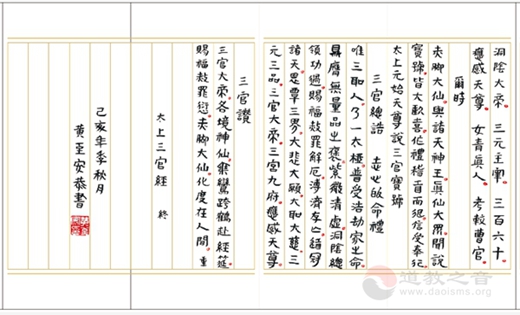 洞陰大帝 三元主宰 三百六十
應感天尊 女青真人 考較曹官
爾時
赤腳大仙與諸天神王與仙大眾聞說
寶號皆大歡喜作禮稽首而退信受奉行
太上元始天尊說三官寶號
三官總誥 志心皈命禮
唯三聖人乃一太極普受浩劫家之命
鼎膺無量品之褒紫微清虛洞陰總
領功過賜福赦罪解厄溥濟存亡道冠
諸天恩覃三界大悲大願大聖大慈三
元三品三官大帝三宮九府應感天尊
三官讚
三官大帝各境神仙乘鸞跨鶴赴經筵
賜福赦罪愆赤腳大仙化度在人間 重
太上三官經 終
己亥年季秋月
黃至安恭書
道教之音
www.daoisms.org